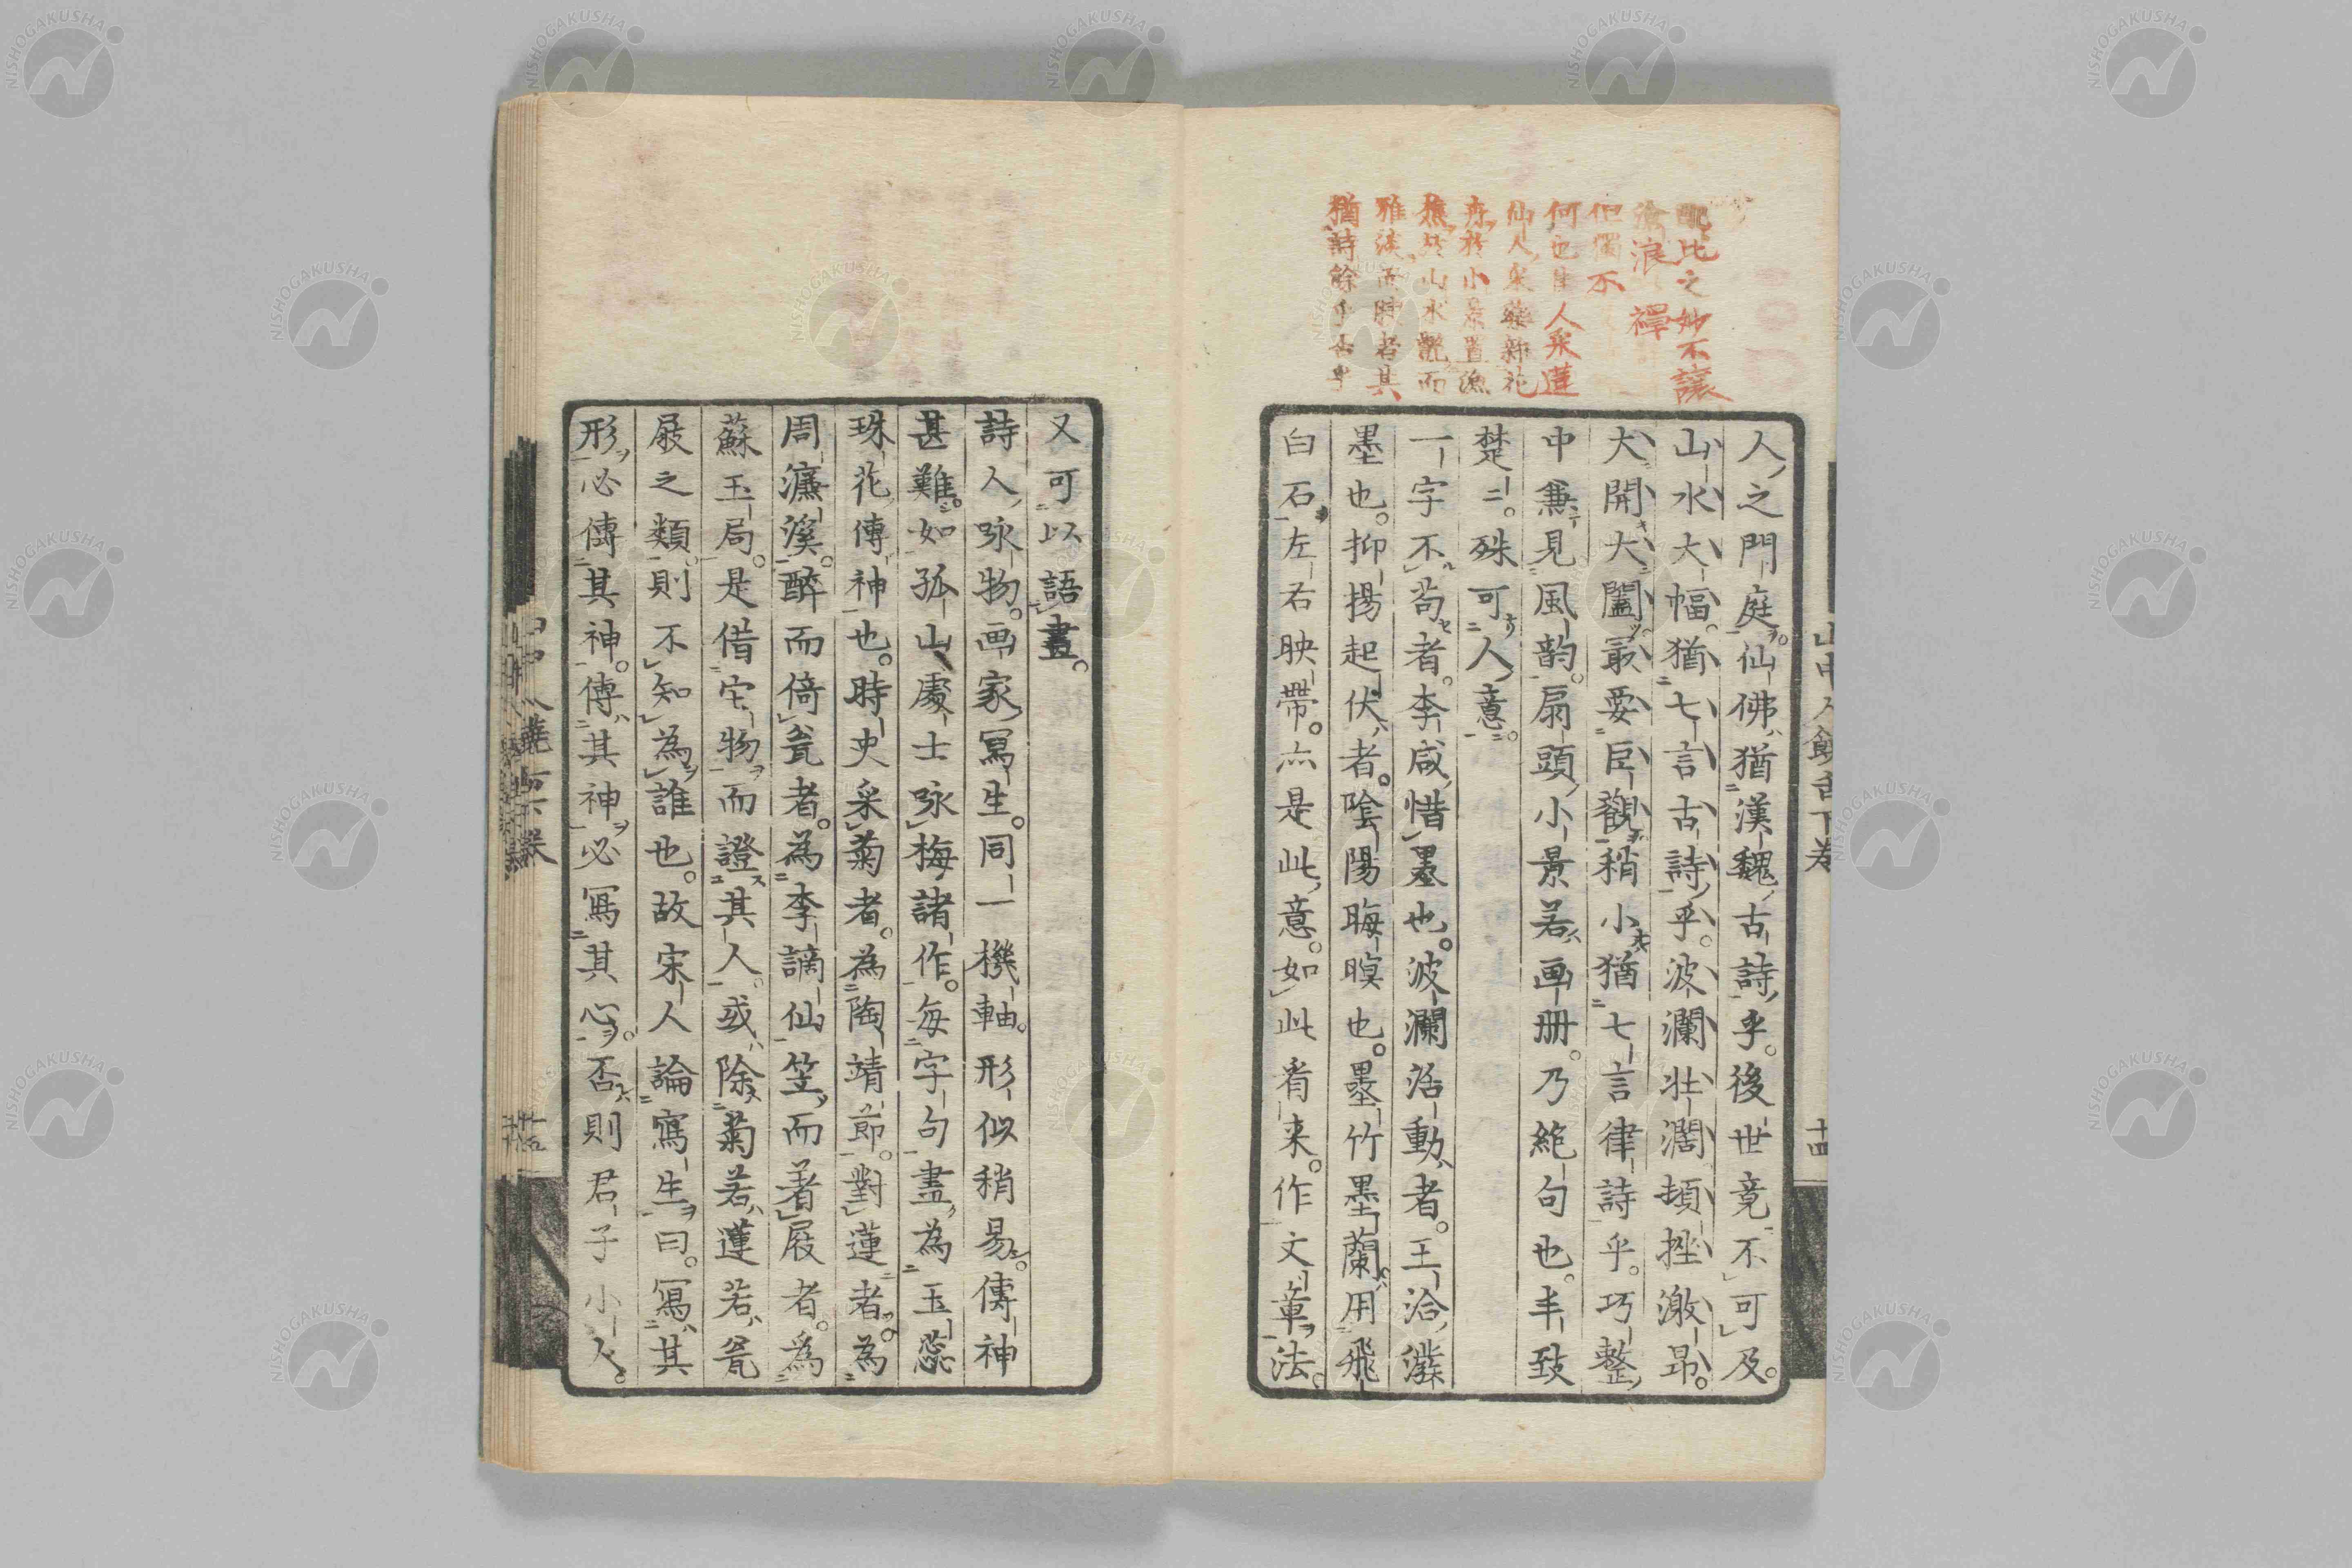 配比之妙不讓
滄浪禪
但獨不
何也生人采蓮
仙人采藥、折花
舟於小景置漁
樵於山水艷而
雅淡而腴者其
猶詩餘乎古乎
人之門庭。仙佛猶漢魏古詩乎。後世竟不可及。
山水大幅。猶七言古詩乎。波瀾壯濶頓挫激昂。
大開大闔。最要巨觀。稍小猶七言律詩乎。巧整
中兼見風韵。扇頭小景若画册。乃絶句也。丰致
楚二。殊可人意。
一字不苟者。李咸惜墨也。波瀾活動者。王洽潑
墨也。抑揚起伏者。陰陽晦暝也。墨竹墨蘭。用飛
白石。左右映帶。亦是此意。如此看来。作文章法。
山中人饒舌下卷
十四
又可以語畫。
詩人咏物。画家寫生。同一機軸。形似稍易。傳神
甚難。如孤山處士咏梅諸作。每字句盡為玉蕊
珠花傳神也。時史采菊者。為陶靖節。對蓮者。為
周濂溪。醉而倚瓮者。為李謫仙。笠而著屐者。為
蘇玉局。是借它物而證其人。或除菊若蓮若瓮
屐之類。則不知為誰也。故宋人論寫生曰。寫其
形。必傳其神。傳其神。必寫其心。否則君子小人。